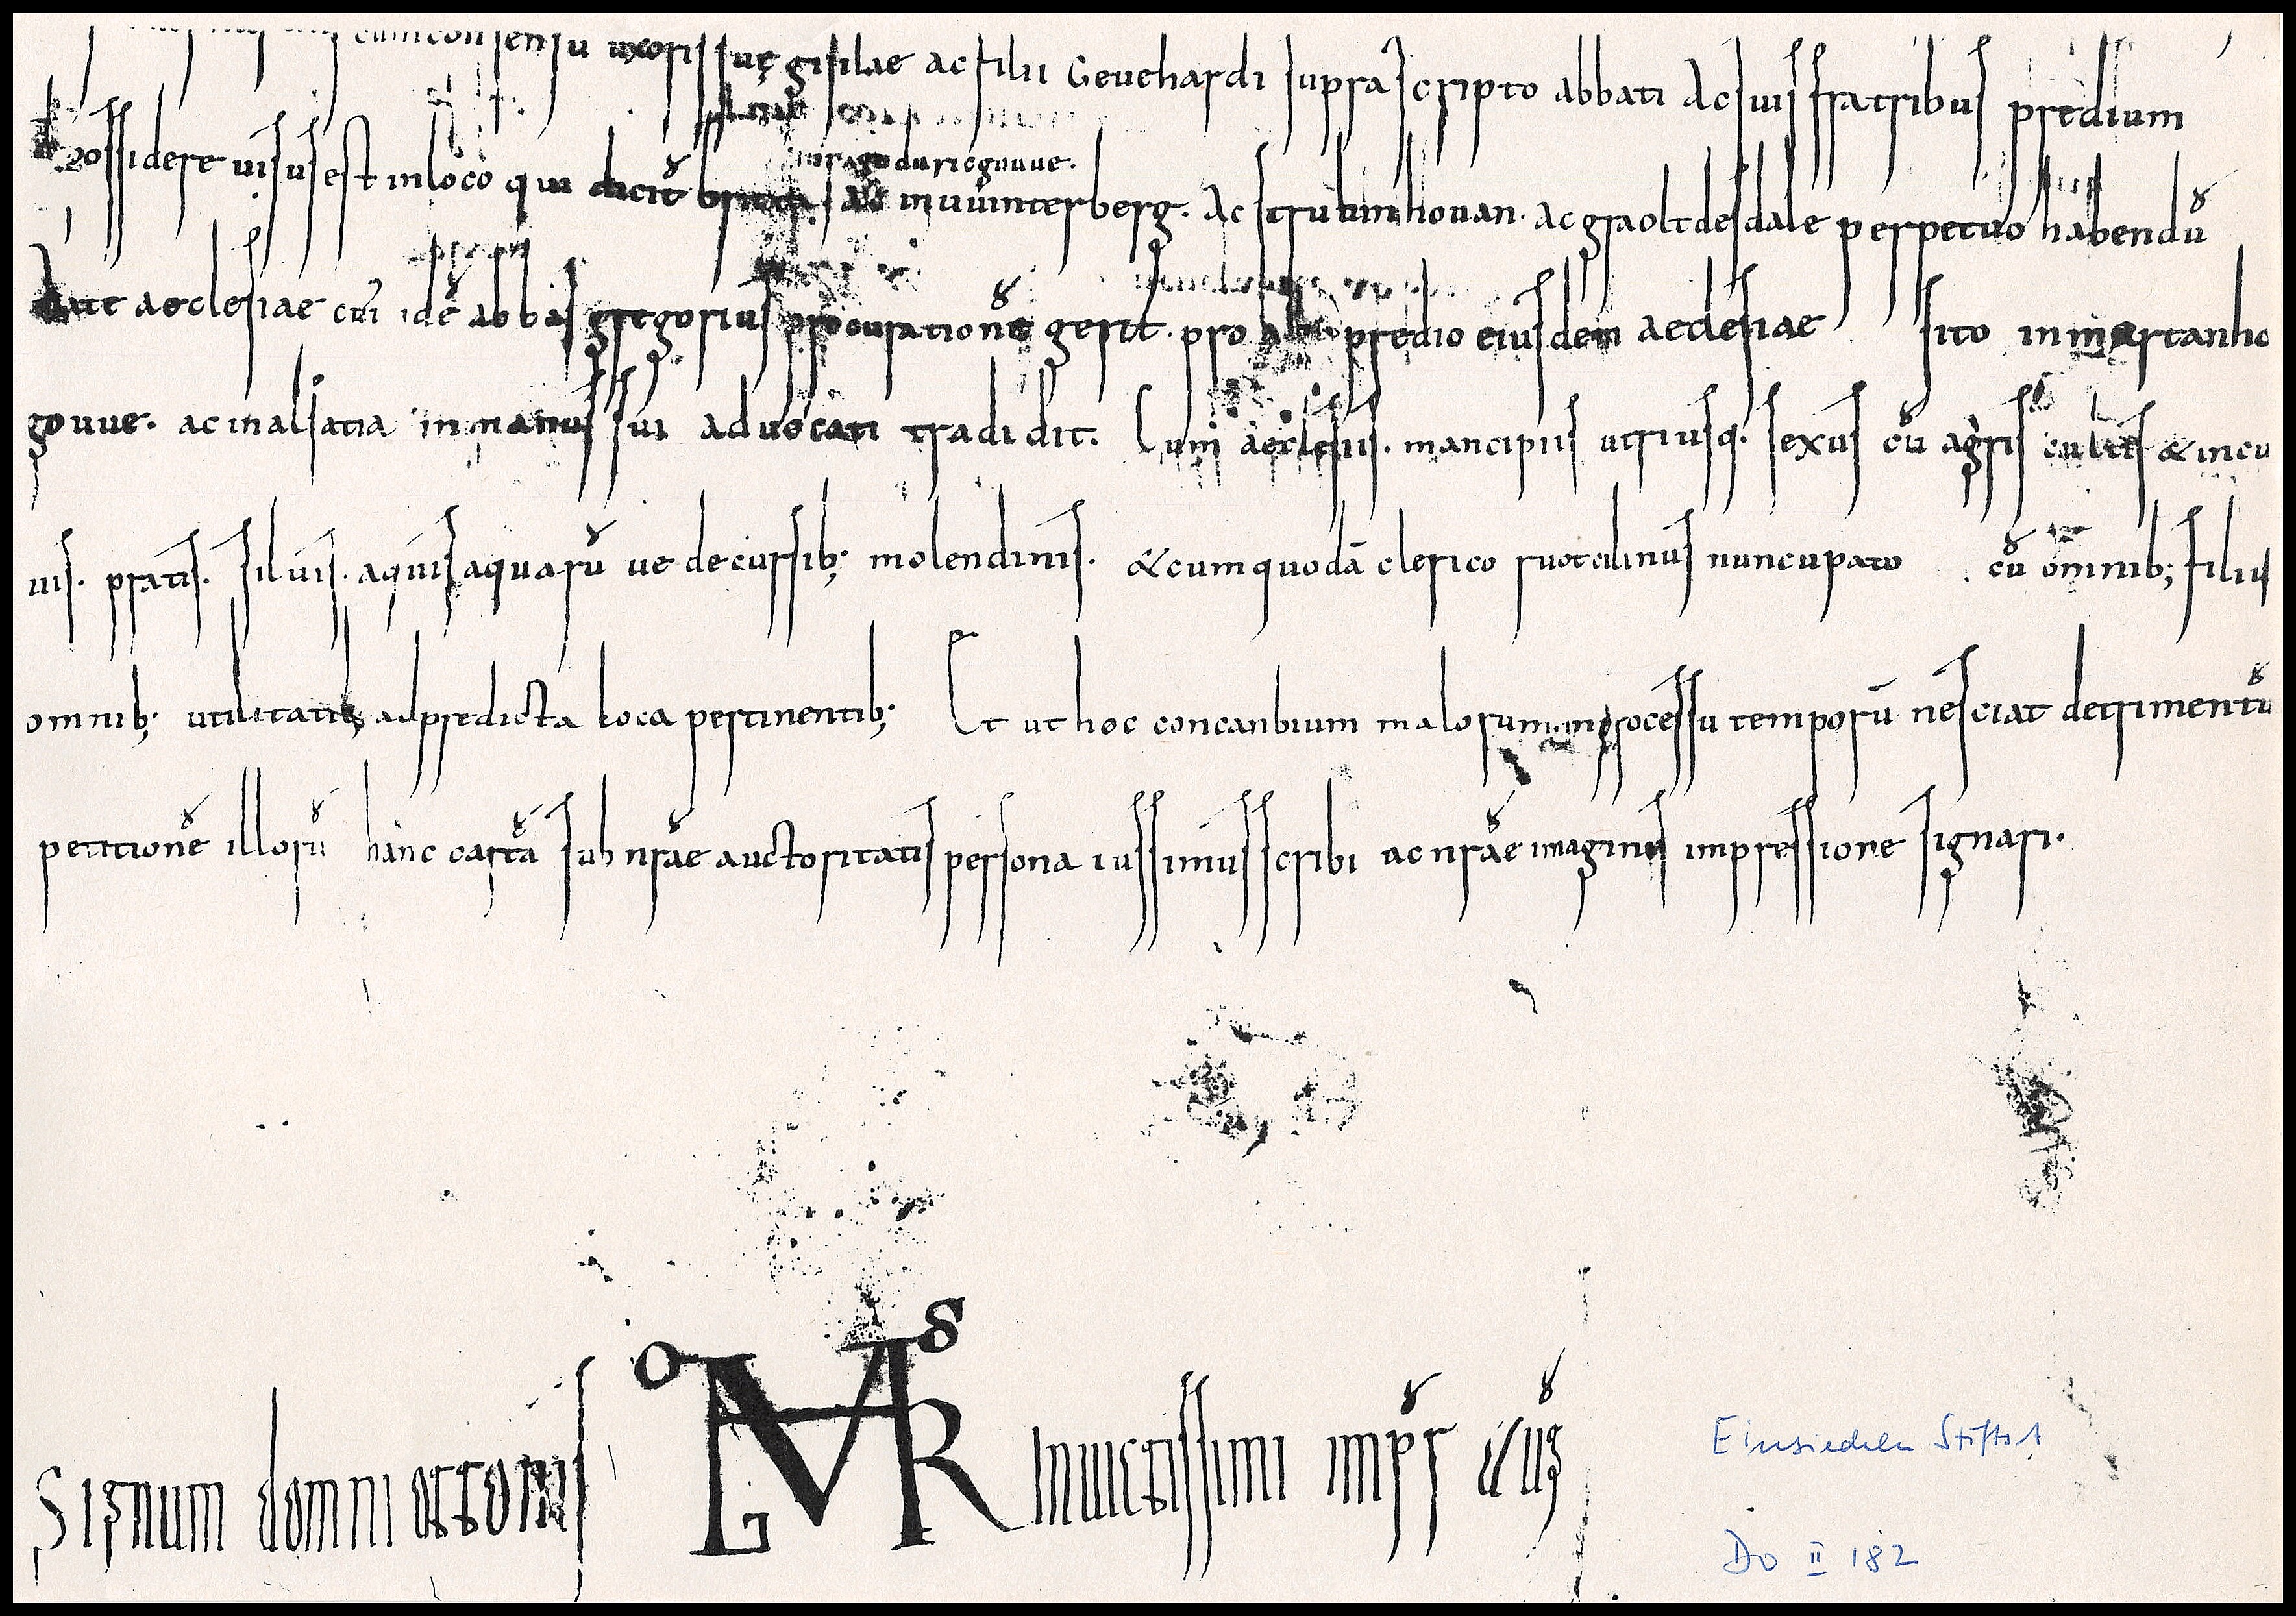 cum consensu uxoris suę gisilae ac filii Gevehardi supra scripto abbati Ac suis fratribus predium
possidere uisus est in loco qui dicit̄ ac in uuinterberg. Ac strubinhouan. ac graoltdesdale perpetuo habendū
in pago duriegouue.
aecclesiae cui idē abbas gregorius procurationē gerit. pro predio eiusdem aecclesiae sito in mortanho
gouue. ac in alsatia in manus sui aduocati tradidit. Cum aecclesiis. mancipiis utriusq. sexus cū agris cultis & incu
uis. pratis. siluis. aquis aquarū ue decursib; molendinis. & cum quodā clerico ruotcilinus nuncupato cū om̄nib; filiis
omnib; utilitatib; ad predicta loca pertinentib; Et ut hoc concanbium malorum in processu temporū nesciat detrimentū
petitionē illorū hanc cartā sub nr̄ae auctoritatis persona iussimus scribi ac nr̄ae imaginis impressione signari.
Signum domni ottonis O S M A R inuictissimi imp̄r aug̅
Einsiedeln StiftsA
DO II 182